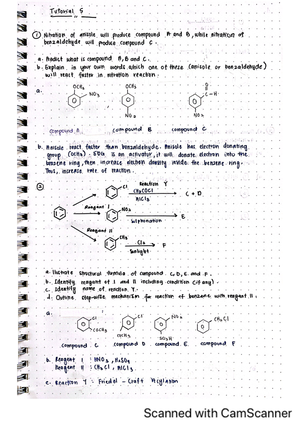 Tutorial 5
① Nitration of anisole will produce compound A and B, while nitration of
benzaldehyde will produce compound C.
a. Predict what is compound A, B and C.
b. Explain in your own words which one of these (anisole or benzaldehyde)
will react faster in nitration reaction.
a. OCH₃ OCH₃ O
NO₂ C-H
NO₂ NO₂
compound A compound B compound C
b. Anisole react faster than benzaldehyde. Anisole has electron donating
group (OCH₃). EDG is an activator, it will donate electron into the
benzene ring, then increase electron density inside the benzene ring.
Thus, increase rate of reaction.
②
Cl Reaction Y
CH₃COCl C + D
AlCl₃
Reagent I NO₂
E
Reagent II
CH₃ Cl₂ F
sunlight
a. Illustrate structural formula of compound C, D, E and F.
b. Identify reagent of I and II including condition (if any).
c. Identify name of reaction Y.
d. Outline step-wise mechanism for reaction of benzene with reagent II.
a.
Cl Cl NO₂ CH₂Cl
COCH₃
COCH₃ SO₃H
compound C compound D compound E compound F
b. Reagent I : HNO₃, H₂SO₄
Reagent II : CH₃Cl, AlCl₃
c. Reaction Y : Friedel - Craft
Scanned with CamScanner